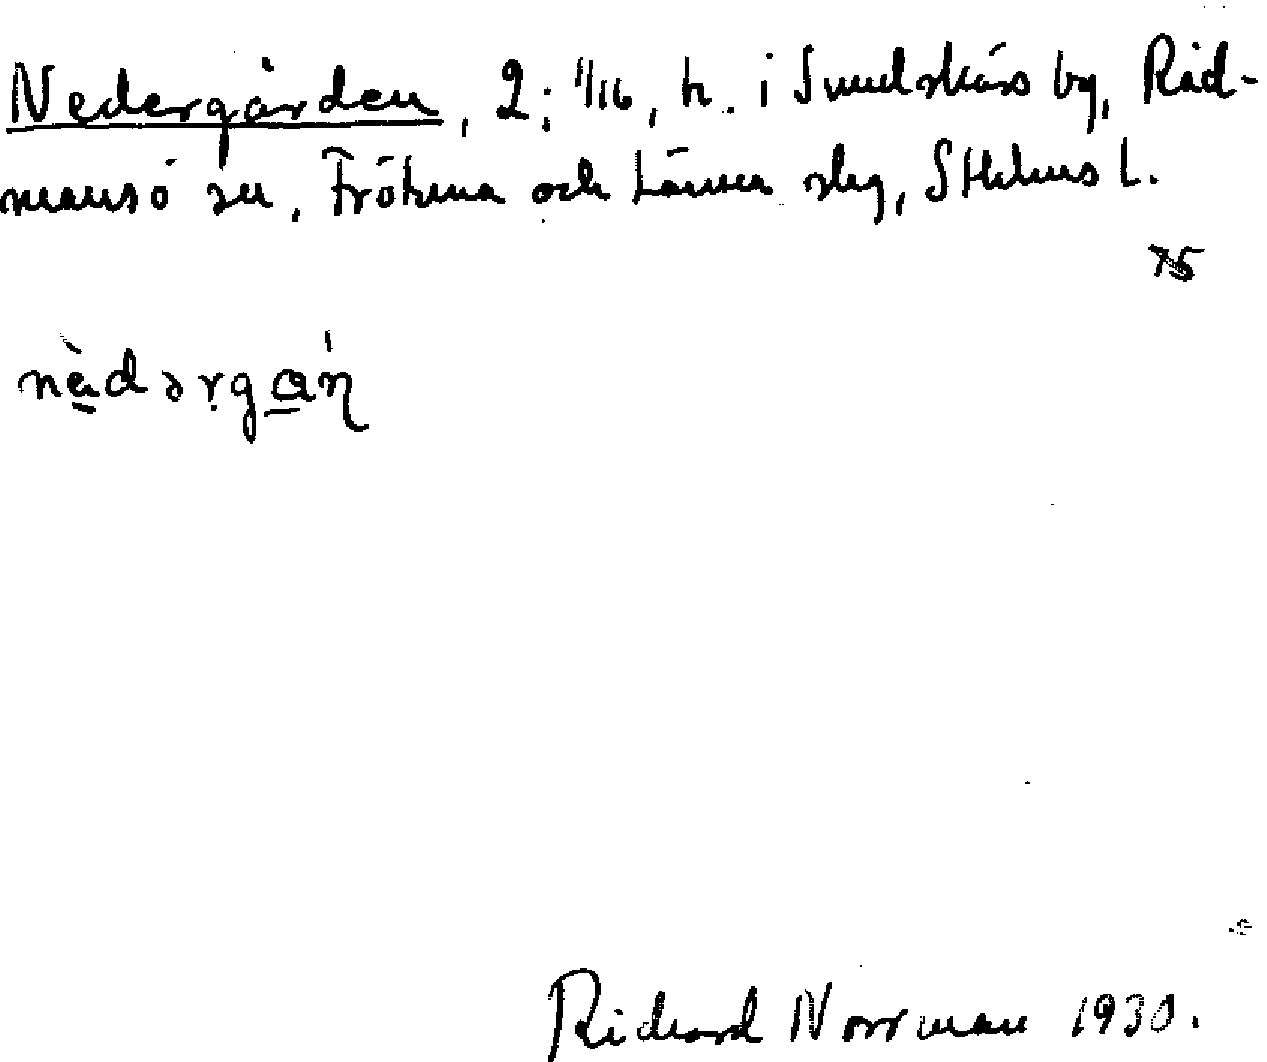 Nedergården, 2; 1/16, h. i Smedskärs by, Råd-
mansö sn, Fröhuna och Länna slg, Sthlms l.
75
nèdərgán
Richard Norrman 1930.